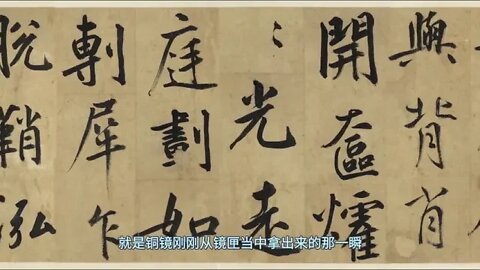 與背肖
開奩燿
〻光走
庭劃如
剸犀乍
脫鞘泓
就是铜镜刚刚从镜匣当中拿出来的那一瞬